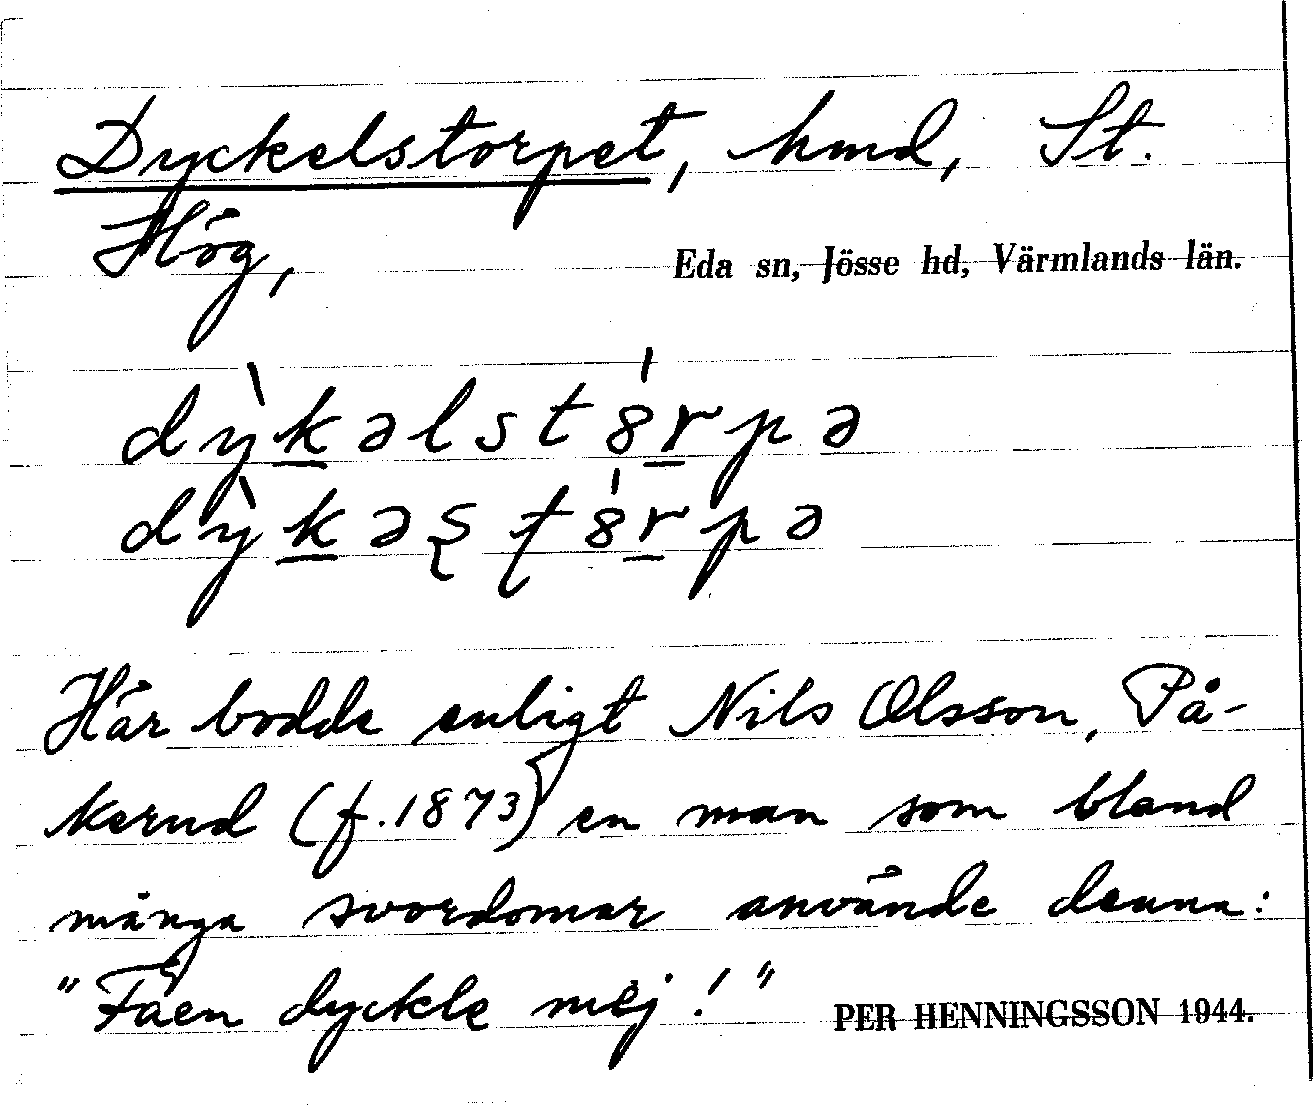 Dyckelstorpet, hmd, St.
Hög,
Eda sn, Jösse hd, Värmlands län.
dỳk̲əlstȣ́r̲pə
dỳk̲əʂʈȣ́r̲pə
Här bodde enligt Nils Olsson, På-
kerud (f. 1873) en man som bland
många svordomar använde denna:
"Fåen dyckle mej!"
PER HENNINGSSON 1944.